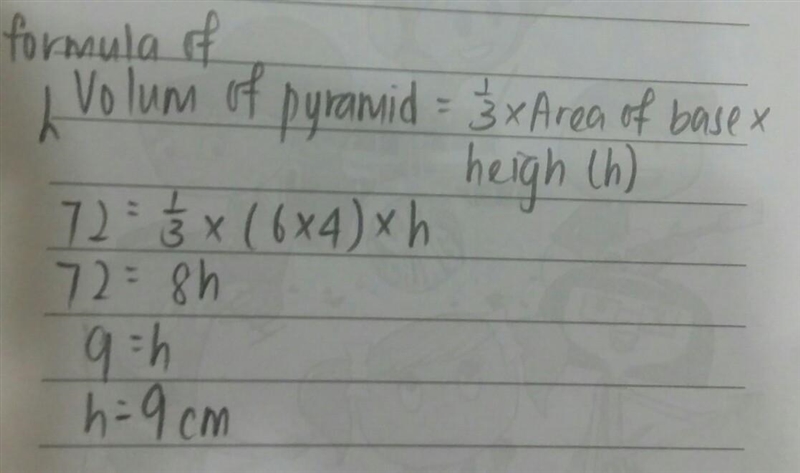 formula of
Volum of pyramid = 1/3 × Area of base ×
heigh (h)
72 = 1/3 × (6×4) × h
72 = 8h
9 = h
h = 9 cm